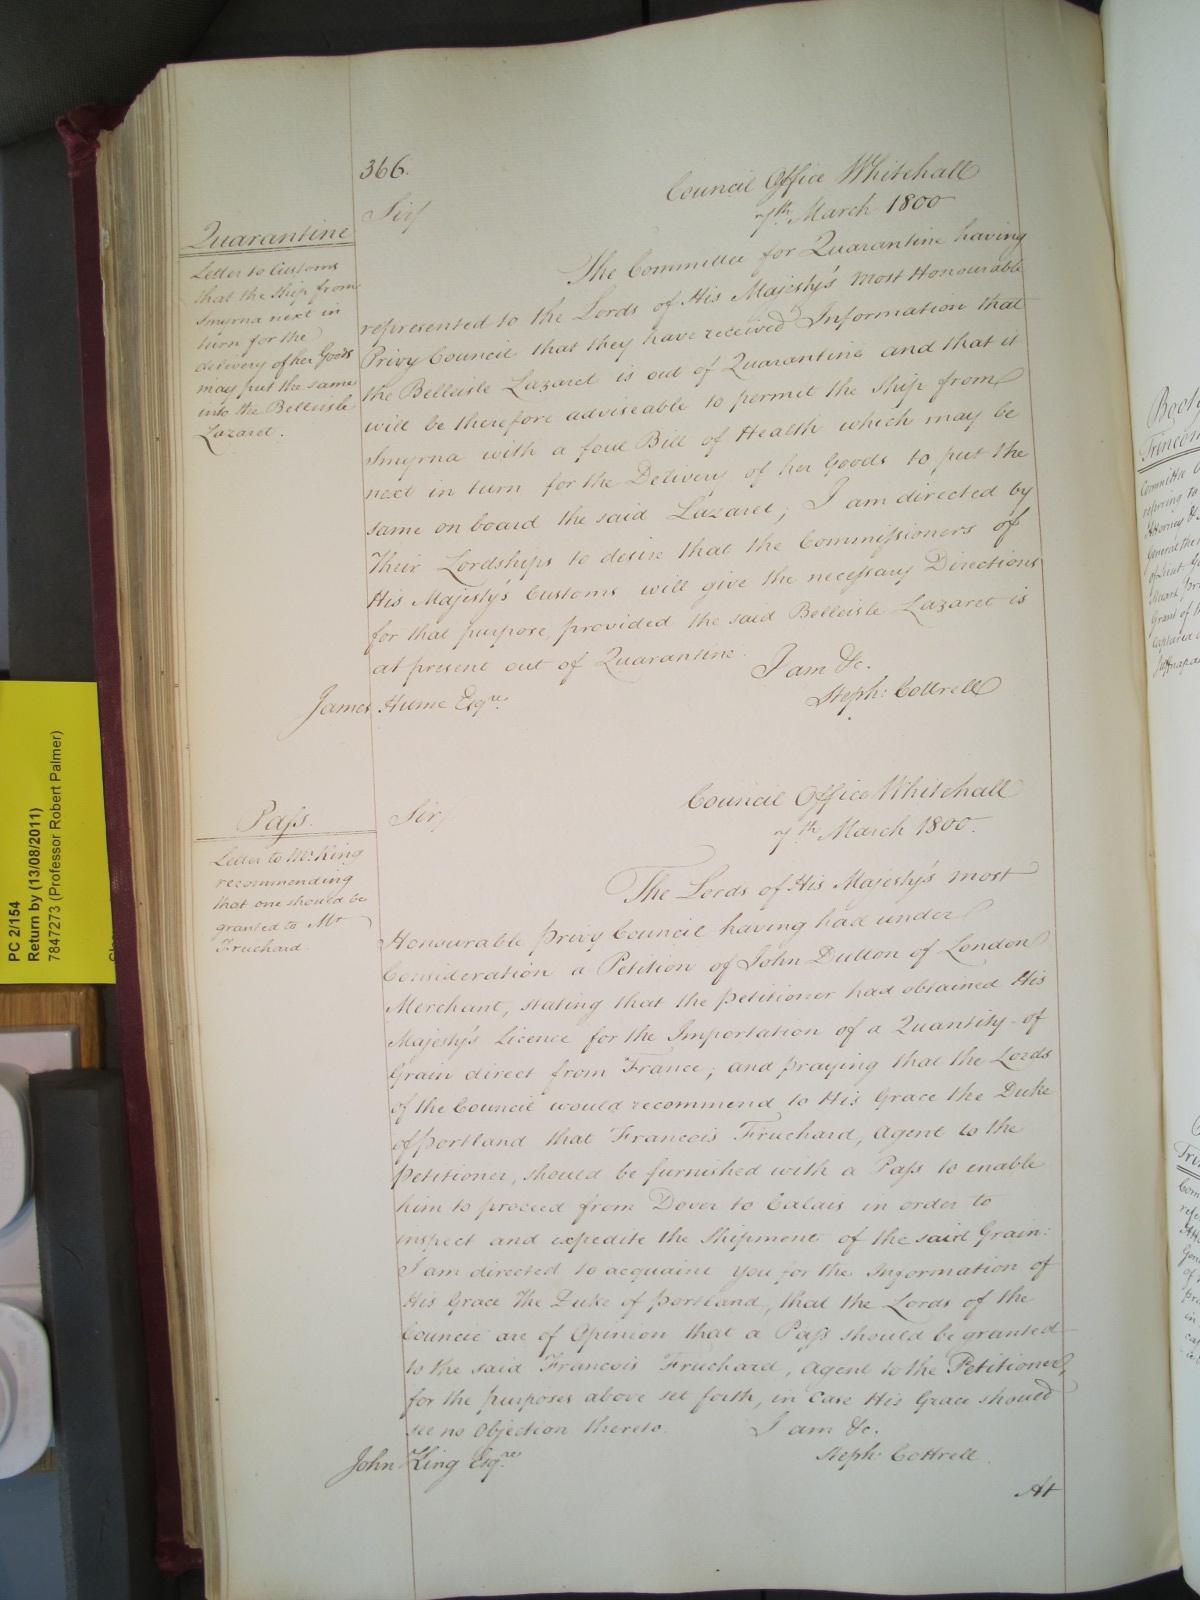 366.
Council Office Whitehall
7th March 1800
Sir/
Quarantine
Letter to Customs
that the Ship from
Smyrna next in
turn for the
delivery of her Goods
may put the same
into the Belleisle
Lazaret.
The Committee for Quarantine having
represented to the Lords of His Majesty's most Honourable
Privy Council that they have received Information that
the Belleisle Lazaret is out of Quarantine and that it
will be therefore adviseable to permit the Ship from
Smyrna with a foul Bill of Health which may be
next in turn for the Delivery of her Goods to put the
same on board the said Lazaret; I am directed by
Their Lordships to desire that the Commissioners of
His Majesty's Customs will give the necessary Directions
for that purpose, provided the said Belleisle Lazaret is
at present out of Quarantine.
I am &c.
Steph: Cottrell
James Hume Esqre.
Council Office Whitehall
7th March 1800.
Sir/
Pass.
Letter to Mr King
recommending
that one should be
granted to Mr
Fruchard.
The Lords of His Majesty's most
Honourable Privy Council having had under
Consideration a Petition of John Dutton of London
Merchant, stating that the Petitioner had obtained His
Majesty's Licence for the Importation of a Quantity of
Grain direct from France; and praying that the Lords
of the Council would recommend to His Grace the Duke
of Portland that Francois Fruchard, Agent to the
Petitioner, should be furnished with a Pass to enable
him to proceed from Dover to Calais in order to
inspect and expedite the Shipment of the said Grain:
I am directed to acquaint you for the Information of
His Grace The Duke of Portland, that the Lords of the
Council are of Opinion that a Pass should be granted
to the said Francois Fruchard, Agent to the Petitioner,
for the purposes above set forth, in case His Grace should
see no Objection thereto.
I am &c.
Steph: Cottrell
John King Esqre.
At
PC 2/154
Return by (13/08/2011)
7847273 (Professor Robert Palmer)
Trincom
Committee
refering to
Attorney &
General the
of Lieut
Stuart
Grant of
Captured